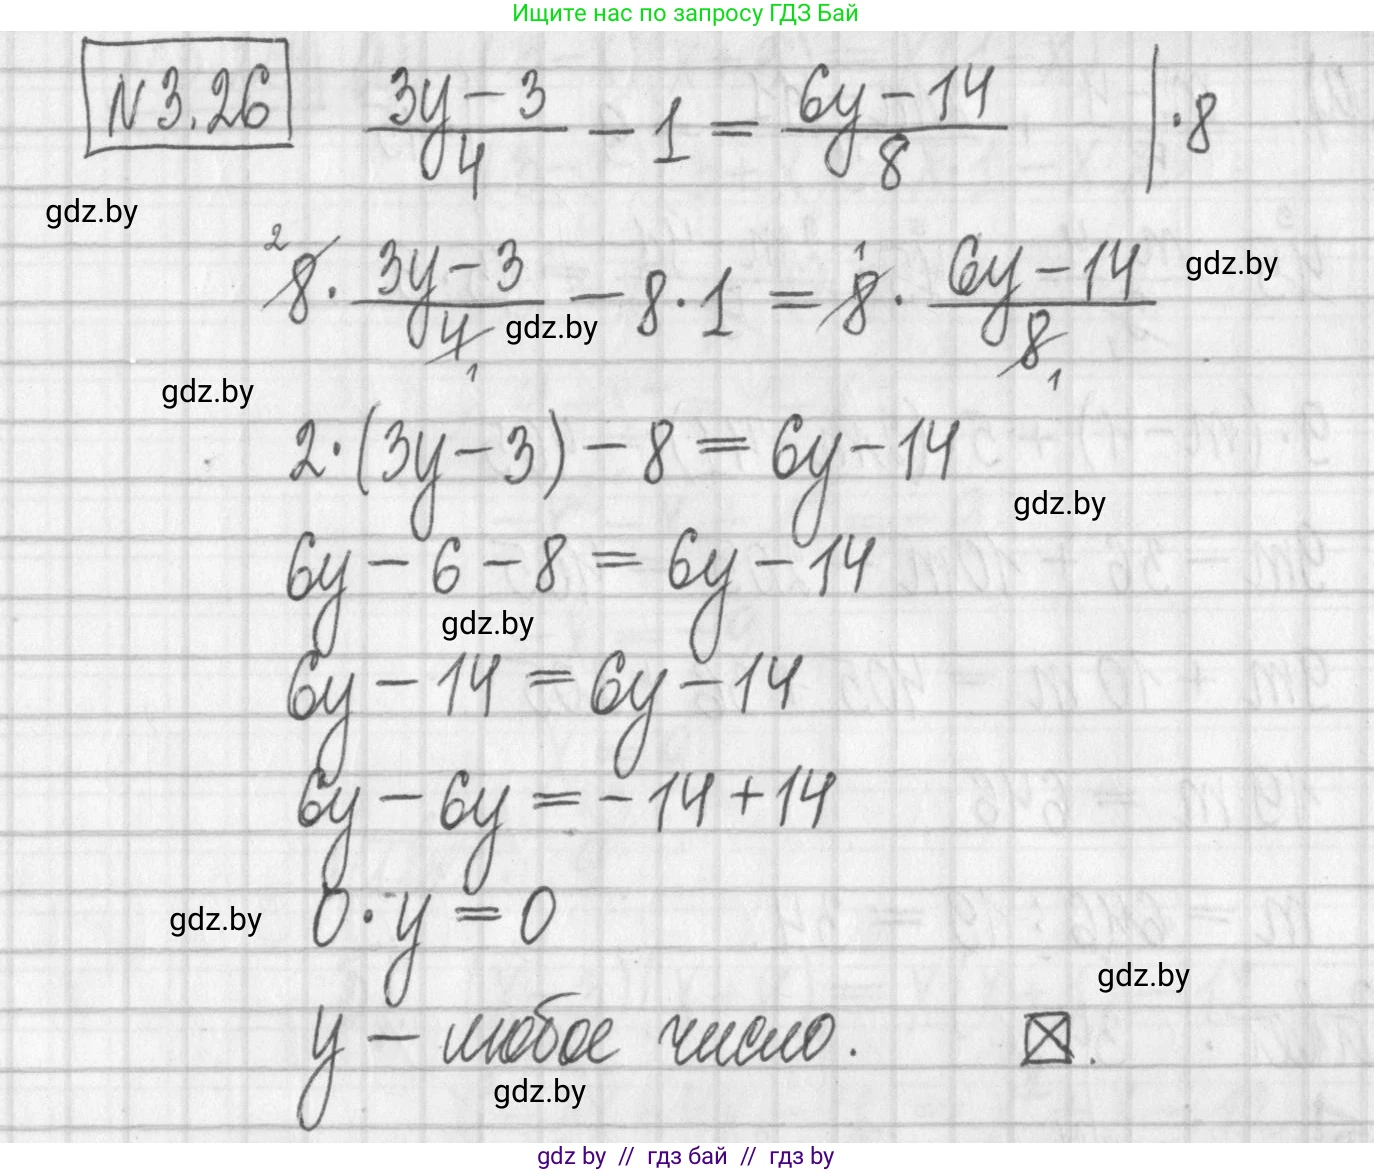 Ищите нас по запросу ГДЗ Бай
N 3.26 (3y − 3)/4 − 1 = (6y − 14)/8 | · 8
gdz.by
2 8 · (3y − 3)/4 1 − 8 · 1 = 1 8 · (6y − 14)/8 1
gdz.by
gdz.by
gdz.by
2 · (3y − 3) − 8 = 6y − 14
gdz.by
6y − 6 − 8 = 6y − 14
gdz.by
6y − 14 = 6y − 14
6y − 6y = −14 + 14
gdz.by 0 · y = 0
gdz.by
y − любое число. ☒.
gdz.by
gdz by // гдз бай // гдз by